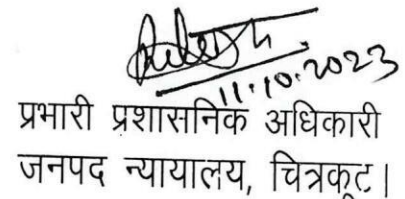 11.10.2023
प्रभारी प्रशासनिक अधिकारी
जनपद न्यायालय, चित्रकूट।